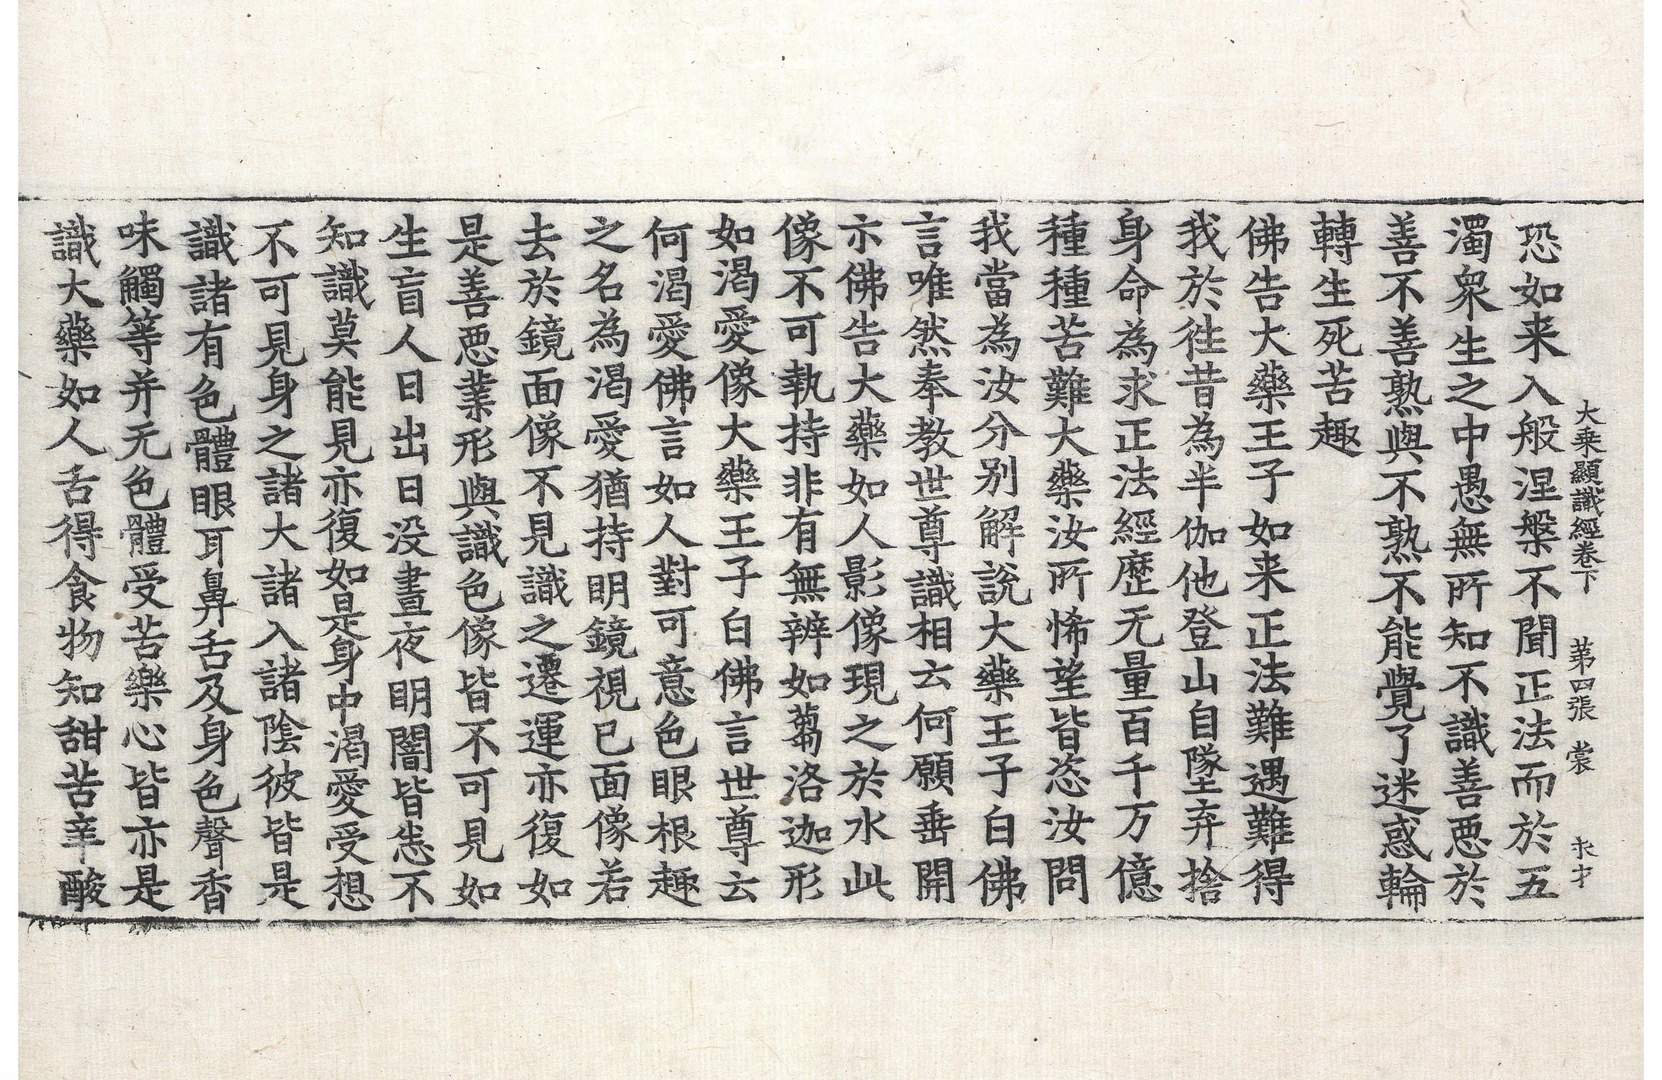 大乘顯識經卷下　第四張　裳　永才
恐如来入般涅槃不聞正法而於五
濁衆生之中愚無所知不識善惡於
善不善熟與不熟不能覺了迷惑輪
轉生死苦趣
佛告大藥王子如来正法難遇難得
我於往昔為半伽他登山自墜弃捨
身命為求正法經歷无量百千万億
種種苦難大藥汝所悕望皆恣汝問
我當為汝分別解說大藥王子白佛
言唯然奉教世尊識相云何願垂開
示佛告大藥如人影像現之於水此
像不可執持非有無辨如蒭洛迦形
如渴愛像大藥王子白佛言世尊云
何渴愛佛言如人對可意色眼根趣
之名為渴愛猶持明鏡視已面像若
去於鏡面像不見識之遷運亦復如
是善惡業形與識色像皆不可見如
生盲人日出日没晝夜明闇皆悉不
知識莫能見亦復如是身中渴愛受想
不可見身之諸大諸入諸陰彼皆是
識諸有色體眼耳鼻舌及身色聲香
味觸等并无色體受苦樂心皆亦是
識大藥如人舌得食物知甜苦辛酸